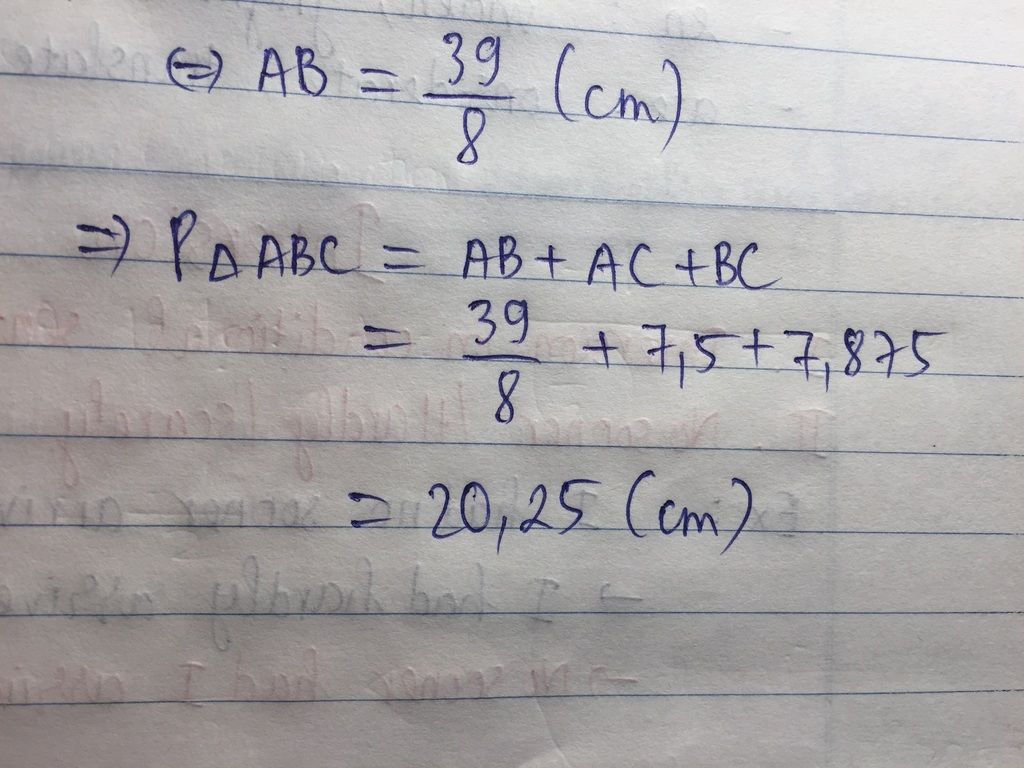 ⇔ AB = 39/8 (cm)
⇒ P△ABC = AB + AC + BC
= 39/8 + 7,5 + 7,875
= 20,25 (cm)